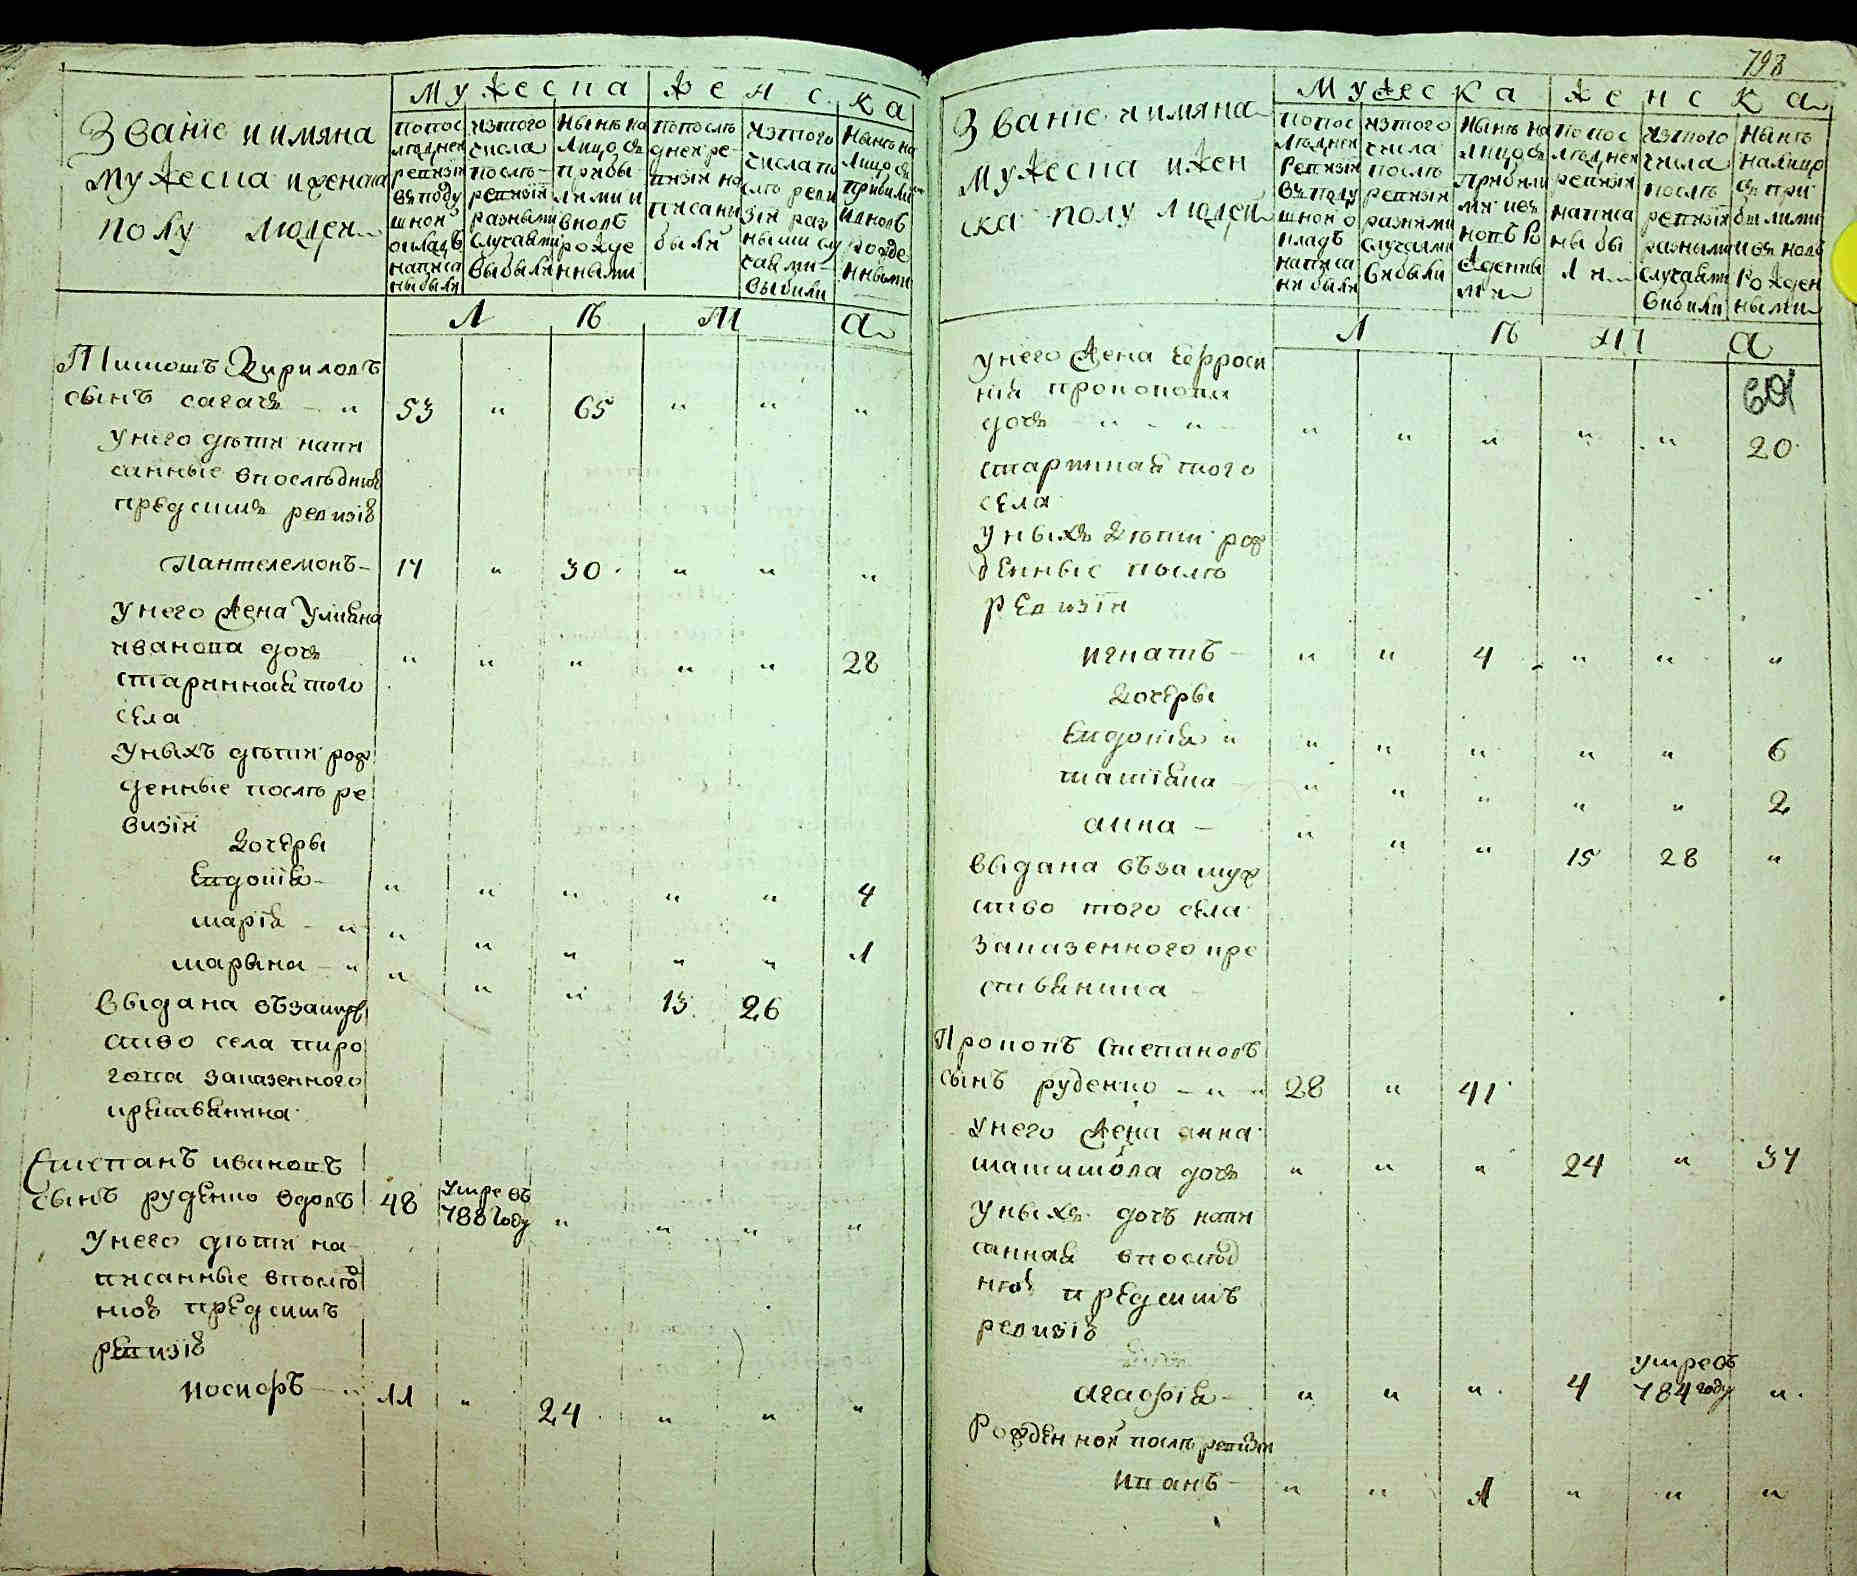 Званіе и имяна
мужеска и женска
полу людей
Мужеска Женска
по последней ревизіи въ подушной окладъ написаны были
изъ того числа после ревизіи разными случаями выбыли
нынѣ на лицо съ прибылыми и вновь рожденными
по последней ревизіи написаны были
изъ того числа после ревизіи разными случаями выбыли
нынѣ на лицо съ прибылими и вновь рожденными
Л ѣ т а
Тимошъ Кириловъ
сынъ сагачъ 53 „ 65 „ „ „
у него дѣти напи
санные впослѣдней
предсимъ ревизіи
Пантелемонъ 17 „ 30 „ „ „
у него жена Улияна
иванова дочь „ „ „ „ „ 28
старинная того
села
у ныхъ дѣти рож
денные послѣ ре
визіи
дочеры
Евдокія „ „ „ „ „ 4
марія „ „ „ „ „ 1
марына „ „ „ 13 26
выдана въ замуж
ство села пиро
гова заказенного
крестянина
Степанъ ивановъ
сынъ руденко вдовъ 48 умре въ 788 году „ „ „ „
у него дѣти на
писанные впослѣд
ней предсимъ
ревизіи
никифоръ 11 „ 24 „ „ „
798
Званіе и имяна
мужеска и жен
ска полу людей
Мужеска Женска
по последней ревизіи въ подушной окладъ написаны были
изъ того числа после ревизіи разними случаями выбыли
нынѣ на лицо съ прибылими и въ новъ рожденными
по последней ревизіи написаны были
изъ того числа после ревизіи разными случаями выбыли
нынѣ на лицо съ прибылими и въ новь рожденными
Л ѣ т а
у него жена Ефроси
нія прокопова
дочь „ „ „ „ „ 20
старинная того
села
у ныхъ дѣти рож
денные послѣ
ревизіи
игнатъ „ „ 4 „ „ „
дочеры
Евдокія „ „ „ „ „ 6
татіяна „ „ „ „ „ 2
анна „ „ „ 15 28 „
выдана въ замуж
ство того села
заказенного кре
стянина
Прокопъ Степановъ
сынъ руденко 28 „ 41
у него жена анна
дочь „ „ „ 24 „ 37
у ныхъ дочь напи
санная впослѣд
ней предсимъ
ревизіи
агафія „ „ „ 4 умре въ 784 году „
Рожденной послѣ ревизіи
иванъ „ „ 1 „ „ „